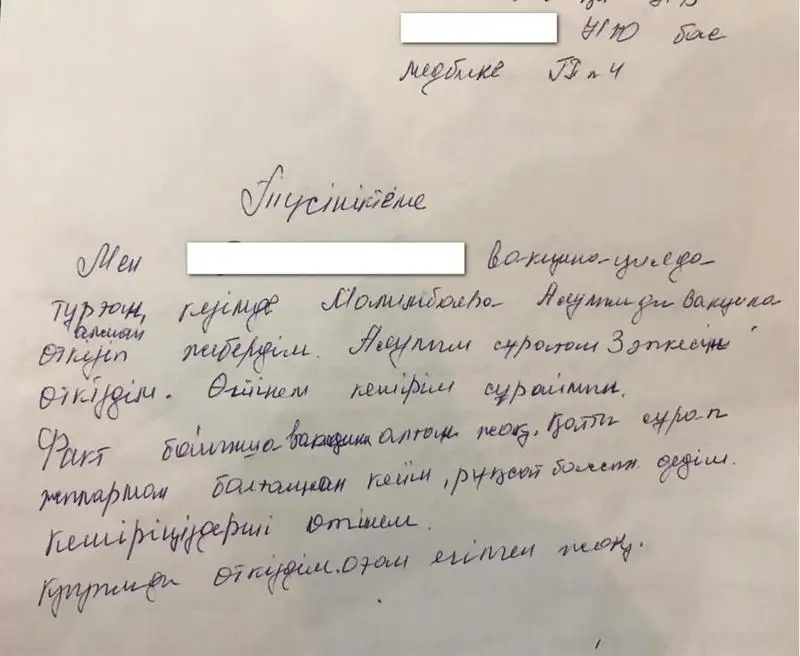 НЖ бас
медбике ГП n 4
Түсініктеме
Мен вакцина-цияда
тұрған, кезімде Малимбаева Ақулимди вакцина
алмай
өткізіп жібердім. Сұраған 3 әпкесін
өткіздім. Өтінем кешірім сұраймын.
Факт бойынша вакцина алған жоқ. Қатты сұрап
жалларман болғаннан кейін, рұқсат болсын дедім.
Кешіріңіздерші өтінем.
өткіздім. оған егілген жоқ.